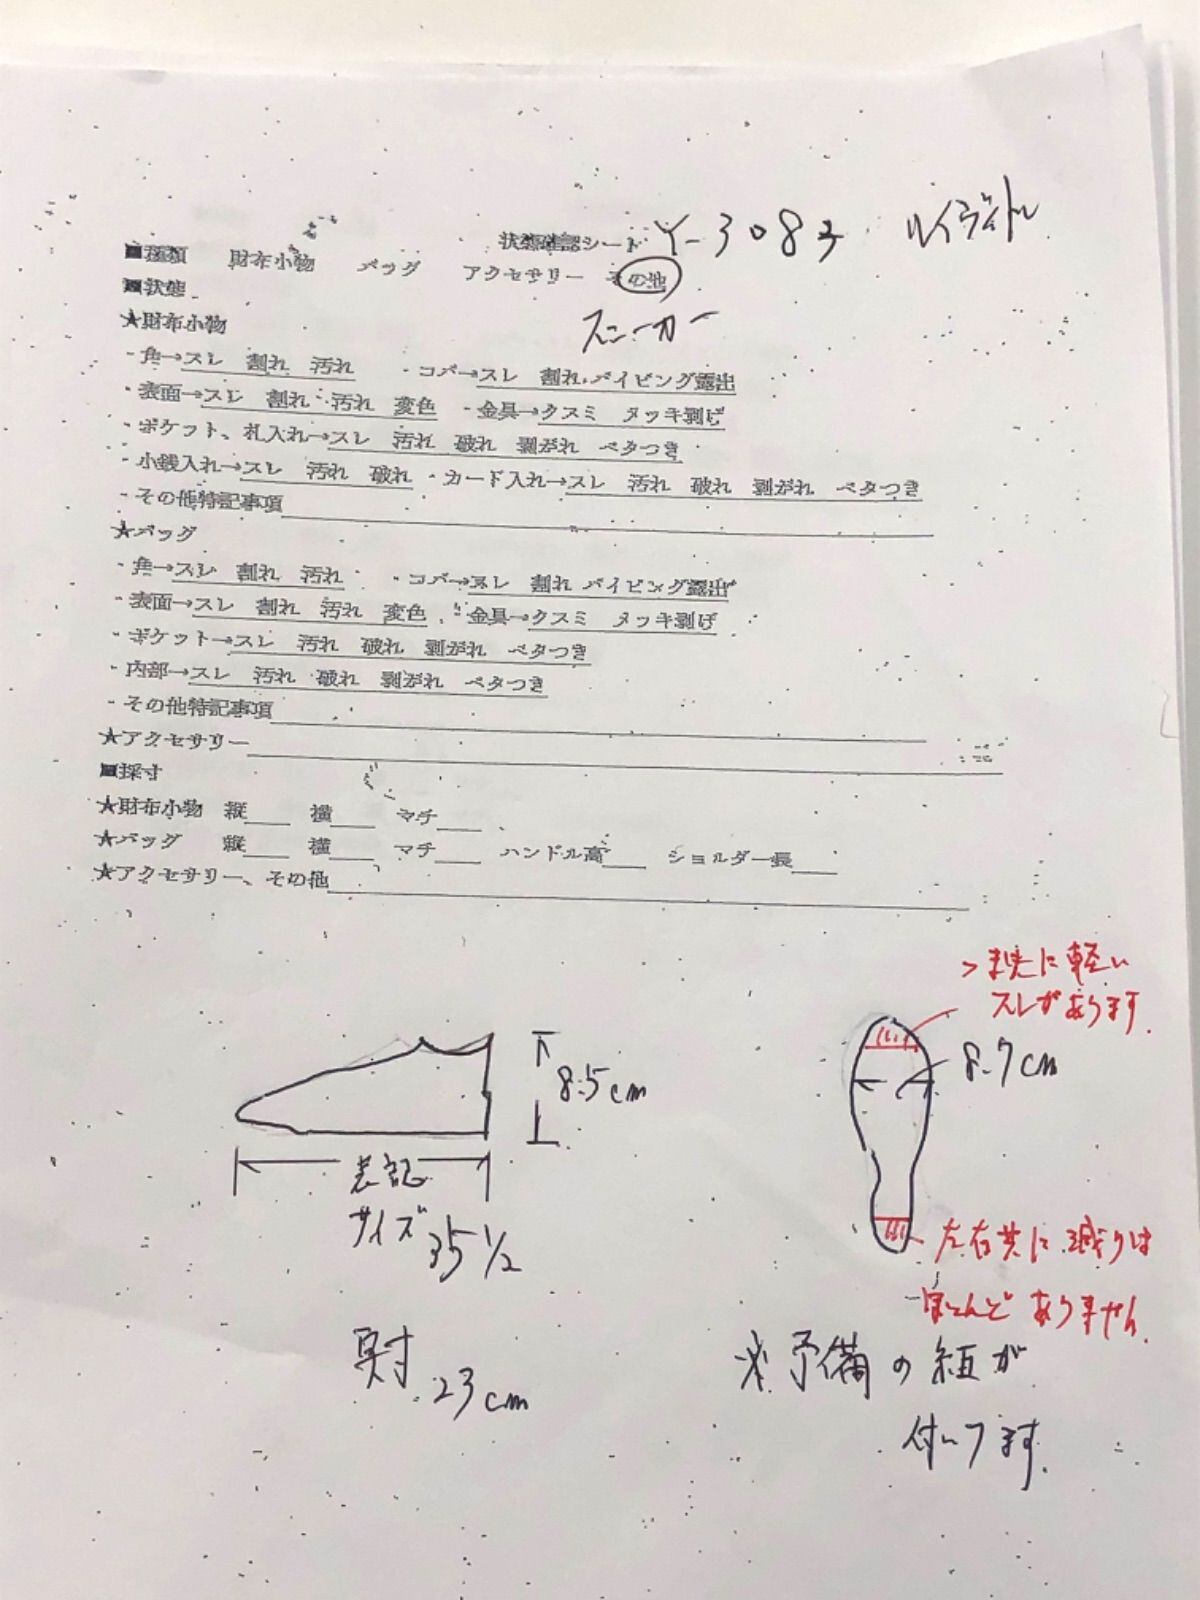 状態確認シート Y-3083 ルイヴィトン
■種類 財布小物 バッグ アクセサリー その他
■状態
スニーカー
★財布小物
・角→スレ 割れ 汚れ ・コバ→スレ 割れ パイピング露出
・表面→スレ 割れ 汚れ 変色 ・金具→クスミ メッキ剥げ
・ポケット、札入れ→スレ 汚れ 破れ 剥がれ ベタつき
・小銭入れ→スレ 汚れ 破れ ・カード入れ→スレ 汚れ 破れ 剥がれ ベタつき
・その他特記事項
★バッグ
・角→スレ 割れ 汚れ ・コバ→スレ 割れ パイピング露出
・表面→スレ 割れ 汚れ 変色 ・金具→クスミ メッキ剥げ
・ポケット→スレ 汚れ 破れ 剥がれ ベタつき
・内部→スレ 汚れ 破れ 剥がれ ベタつき
・その他特記事項
★アクセサリー
■採寸
★財布小物 縦 横 マチ
★バッグ 縦 横 マチ ハンドル高 ショルダー長
★アクセサリー、その他
軽い
スレがあります.
8.5cm
8.7cm
表記
サイズ 35 1/2
左右共に減りは
ほとんどありません.
実寸 23cm
※予備の紐が
付いてます.